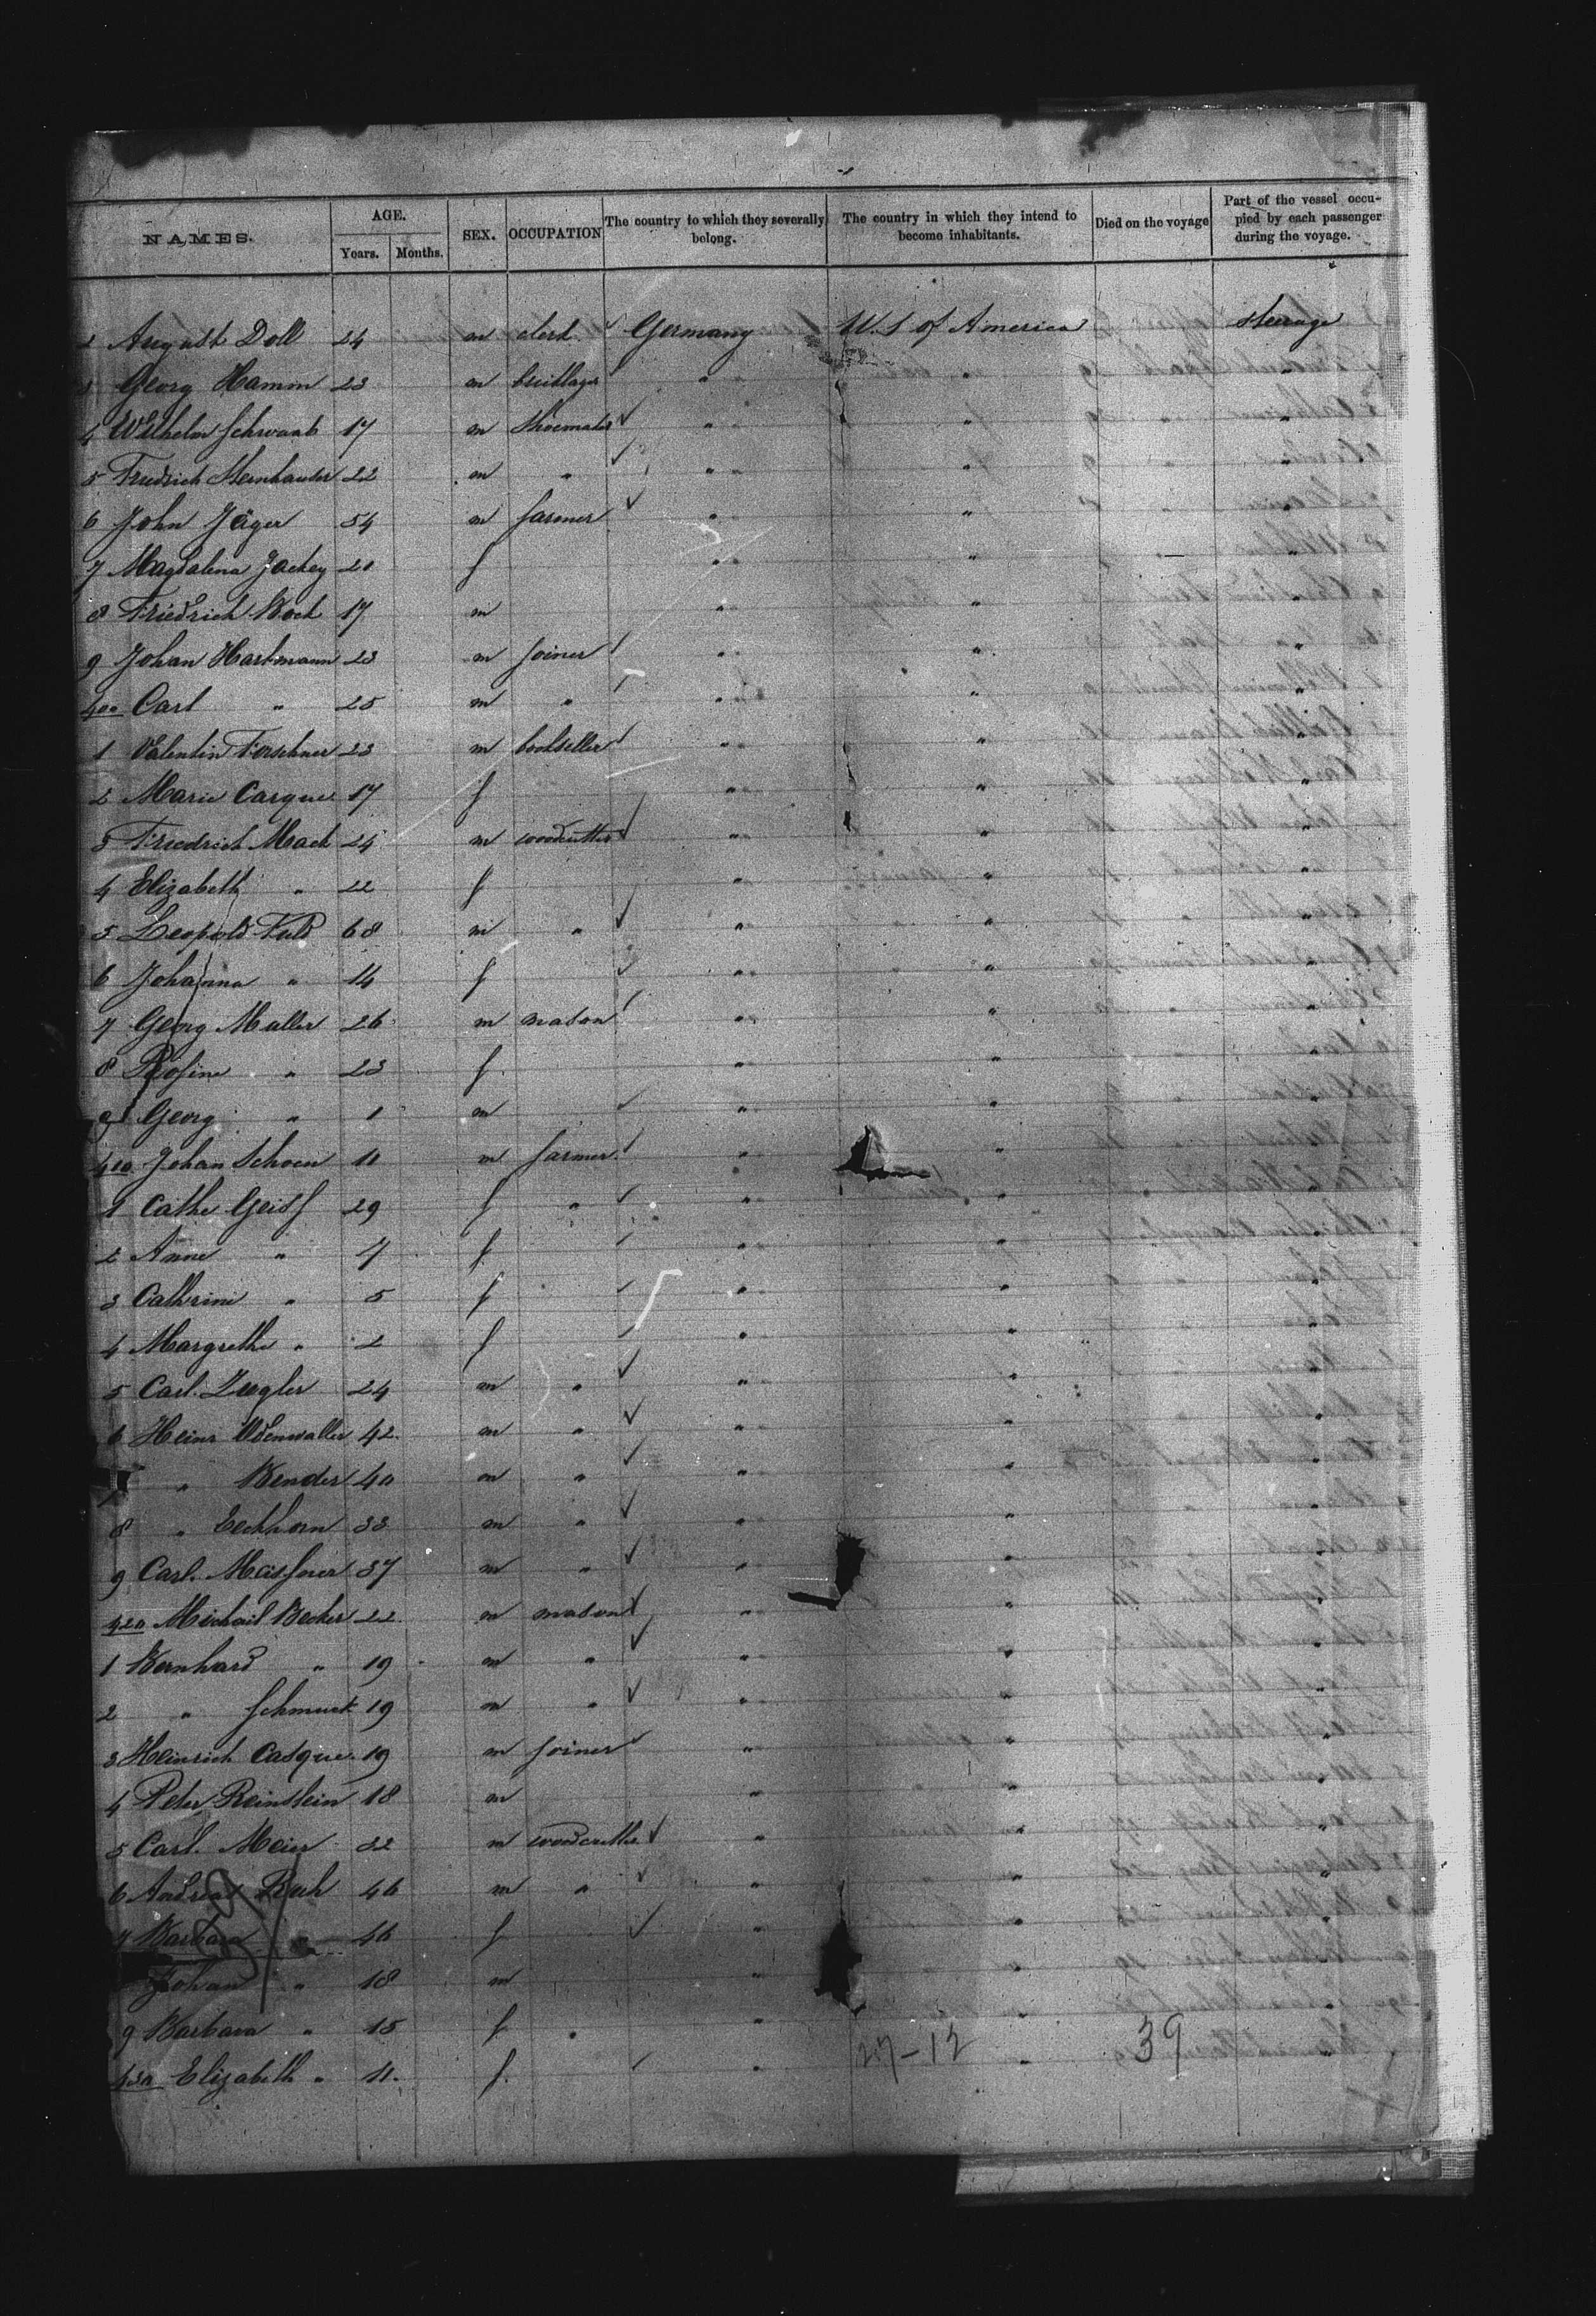 NAMES. AGE. SEX. OCCUPATION The country to which they severally belong. The country in which they intend to become inhabitants. Died on the voyage Part of the vessel occupied by each passenger during the voyage.
Years. Months.
2 August Doll 24 m clerk Germany U.S of America steerage
3 Georg Hamm 23 m " " "
4 Wilhelm Schwaab 17 m Shoemaker " " "
5 Friedrich 22 m " " " "
6 John Jäger 54 m farmer " " "
7 Magdalena Jackey 20 f " "
8 Friedrich Koch 17 m " " "
9 Johan Hartmann 23 m joiner " " "
400 Carl " 25 m " " " "
1 Valentin Forschner 23 m bookseller " " "
2 Marie Carque 17 f " " "
3 Friedrich Mack 24 m woodcutter " " "
4 Elizabeth " 22 f " " "
5 Leopold Fuld 68 m " " " "
6 Johanna " 14 f " " "
7 Georg Muller 26 m mason " " "
8 Rosine " 23 f " " "
9 Georg " 1 m " " "
410 Johan Schoen 11 m farmer " " "
1 Cathe Geiss 29 f " " " "
2 Anne " 7 f " " "
3 Cathrine " 5 f " " "
4 Margrethe " 2 f " " "
5 Carl Ziegler 24 m " " " "
6 Heinr Odenwaller 42 m " " " "
7 " Bender 40 m " " " "
8 " Eckhorn 33 m " " " "
9 Carl Meissner 37 m " " " "
420 Michael Becker 22 m mason " " "
1 Bernhard " 19 m " " " "
2 " Schmuck 19 m " " " "
3 Heinrich Casque 19 m joiner " " "
4 Peter Reinstein 18 m " " "
5 Carl Meier 32 m woodcutter " " "
6 Andreas Ruh 46 m " " " "
7 Barbara " 46 f " " "
Johan " 18 m " " "
9 Barbara " 15 f " " "
430 Elizabeth " 11 f " "
27-12 39